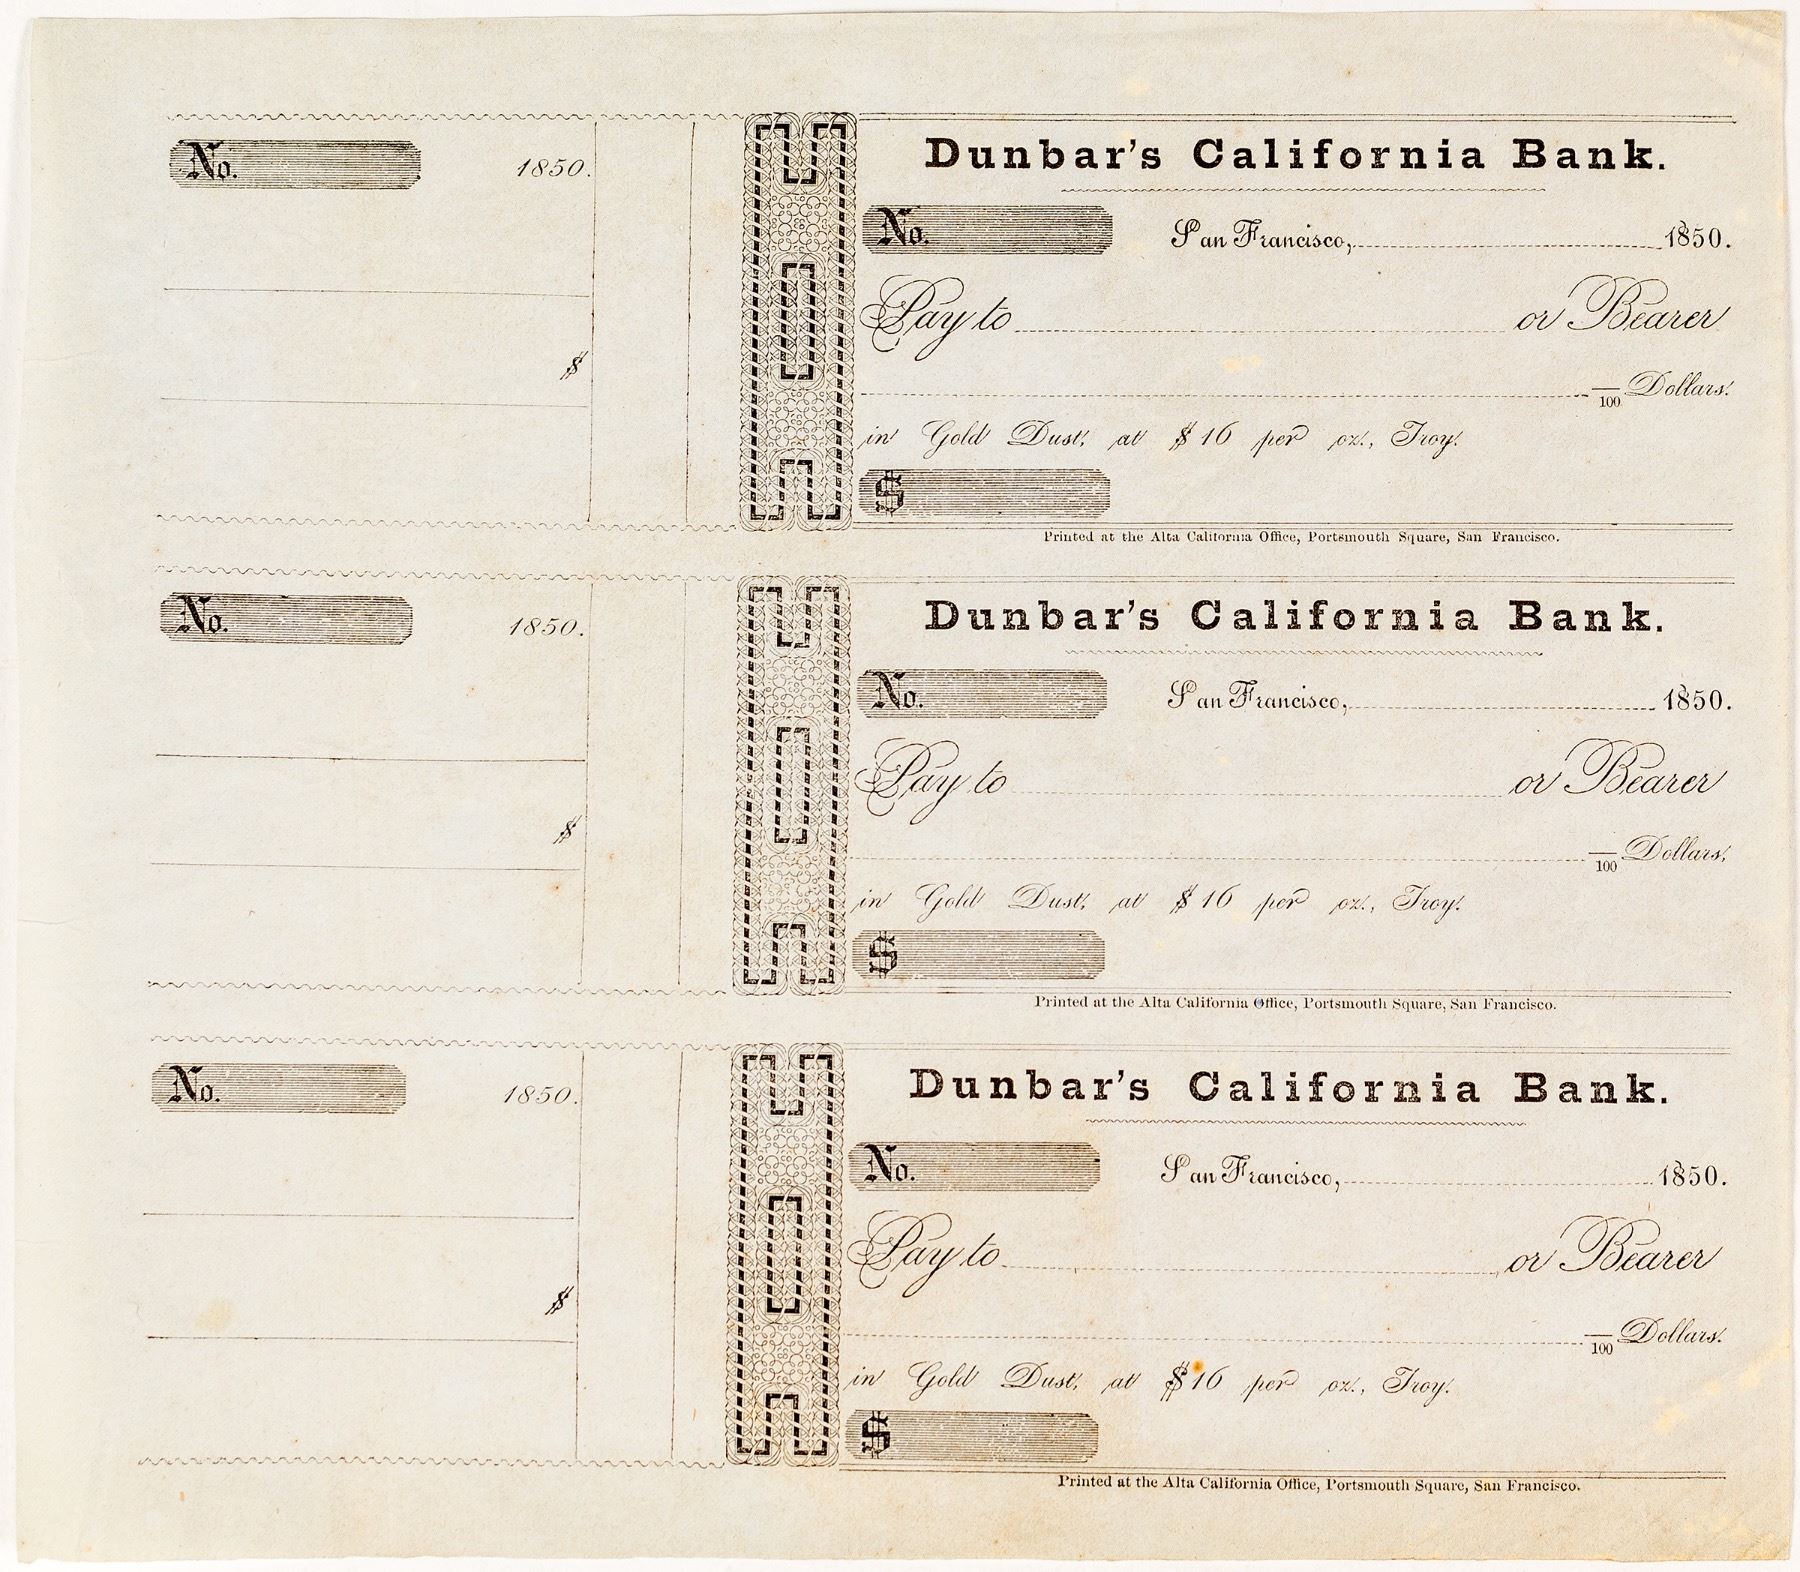 No. 1850.
$
Dunbar's California Bank.
No. San Francisco, 1850.
Pay to or Bearer
/100 Dollars.
in Gold Dust, at $16 per oz., Troy.
$
Printed at the Alta California Office, Portsmouth Square, San Francisco.
No. 1850.
$
Dunbar's California Bank.
No. San Francisco, 1850.
Pay to or Bearer
/100 Dollars,
in Gold Dust, at $16 per oz., Troy.
$
Printed at the Alta California Office, Portsmouth Square, San Francisco.
No. 1850.
$
Dunbar's California Bank.
No. San Francisco, 1850.
Pay to or Bearer
/100 Dollars.
in Gold Dust, at $16 per oz., Troy.
$
Printed at the Alta California Office, Portsmouth Square, San Francisco.